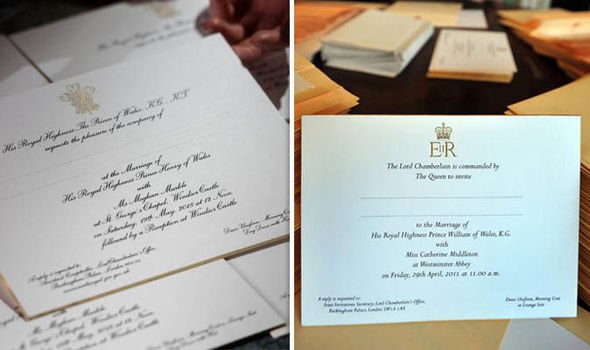 His Royal Highness The Prince of Wales, KG, KT
requests the pleasure of the company of
at the Marriage of
His Royal Highness Prince Henry of Wales
with
Ms. Meghan Markle
at St. George's Chapel, Windsor Castle
on Saturday, 19th May, 2018 at 12 Noon
followed by a Reception at Windsor Castle
A reply is requested to:
Buckingham Palace, London
EIIR
The Lord Chamberlain is commanded by
The Queen to invite
to the Marriage of
His Royal Highness Prince William of Wales, K.G.
with
Miss Catherine Middleton
at Westminster Abbey
on Friday, 29th April, 2011 at 11.00 a.m.
A reply is requested to:
State Invitations Secretary, Lord Chamberlain's Office,
Buckingham Palace, London SW1A 1AA
Dress: Uniform, Morning Coat
or Lounge Suit